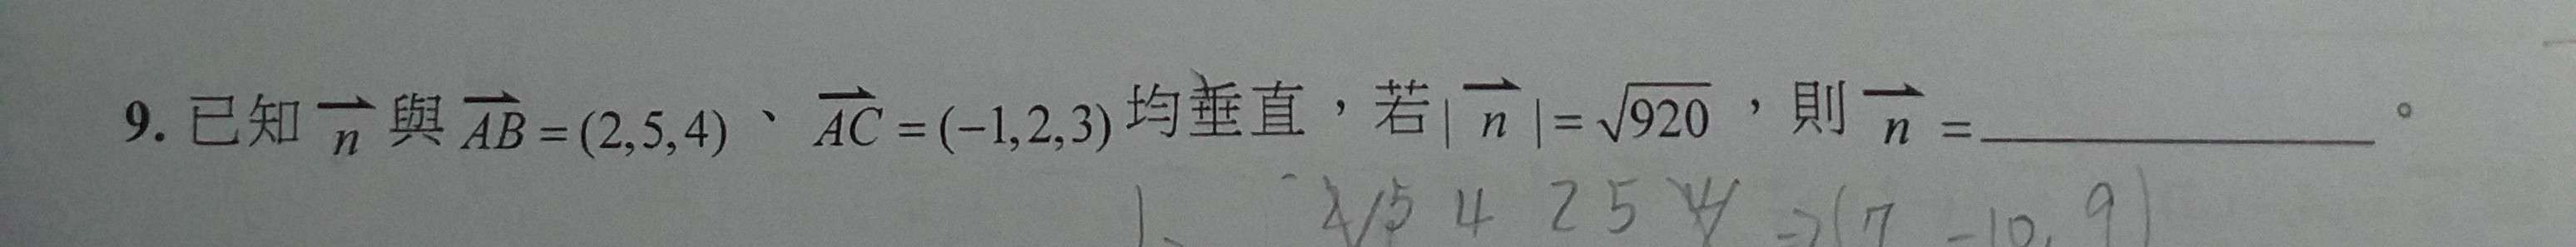 9. 已知 n 與 AB = (2,5,4)、AC = (−1,2,3) 均垂直,若 | n | = √920 ,則 n = ________ 。
2 5 4 2 5 4 ⇒ (7 -10, 9)